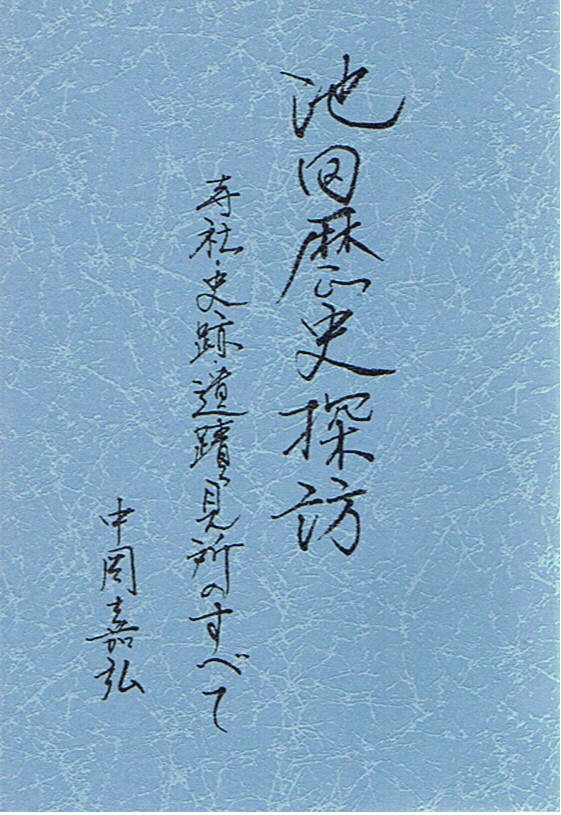 池田歴史探訪
寺社・史跡・遺蹟・見所のすべて
中岡嘉弘